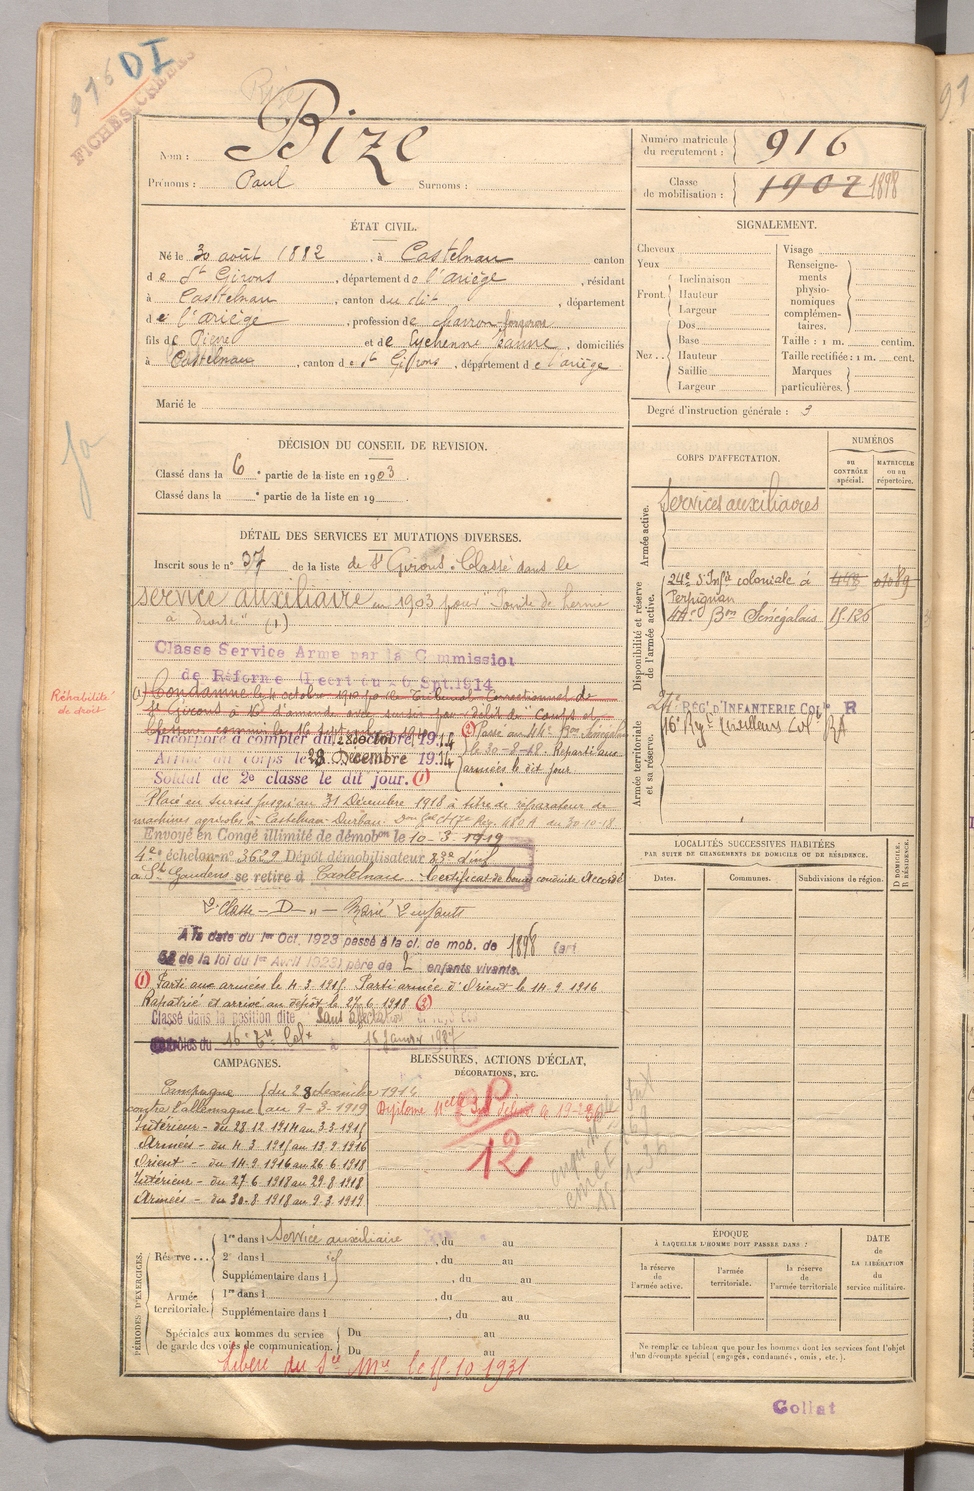 916 DI
FICHES CREES
Nom : Bize
Prénoms : Paul Surnoms :
Numéro matricule du recrutement : 916
Classe de mobilisation : 1902 1898
ÉTAT CIVIL.
Né le 30 août 1882, à Castelnau canton
de St Girons, département de l'ariège, résidant
à Castelnau, canton du dit, département
de l'ariège, profession de charron-forgeron
fils de Pierre et de Eychenne Jeanne, domiciliés
à Castelnau, canton de St Girons, département de l'ariège.
Marié le
SIGNALEMENT.
Cheveux
Yeux
Front Inclinaison
Hauteur
Largeur
Nez Dos
Base
Hauteur
Saillie
Largeur
Visage
Renseignements physionomiques complémentaires.
Taille : 1 m. centim.
Taille rectifiée : 1 m. cent.
Marques particulières.
Degré d'instruction générale : 3
DÉCISION DU CONSEIL DE REVISION.
Classé dans la 6e partie de la liste en 1903.
Classé dans la e partie de la liste en 19
CORPS D'AFFECTATION.
NUMÉROS
au CONTRÔLE spécial.
MATRICULE ou au répertoire.
Armée active.
Services auxiliaires
Disponibilité et réserve de l'armée active.
24e d'Infie coloniale à Perpignan 448 01089
44e Bon Sénégalais 15.126
Armée territoriale et sa réserve.
24e RÉGt D'INFANTERIE COLle R
16e Rgt Tirailleurs Col RA
DÉTAIL DES SERVICES ET MUTATIONS DIVERSES.
Inscrit sous le n° 37 de la liste de St Girons. Classé dans le
service auxiliaire en 1903 pour "Pointe de hernie
à droite" (1)
Classe Service Armé par la Commission
de Réforme (Décret du 26 Spt.1914
Réhabilité de droit
(1) Condamné le 4 octobre 1910 par le Tribunal Correctionnel de
St Girons à 16f d'amende avec sursis pour délit de "Coups et
blessures commis le 16 septembre 1910"
Incorporé à compter du 28 octobre 1914
Arrivé au corps le 28 Décembre 1914
Soldat de 2e classe le dit jour. (1)
(2) Passé au 44e Bon Sénégalais
le 30-8-18. Reparti aux
armées le dit jour.
Placé en sursis jusqu'au 31 Décembre 1918 à titre de réparateur de
machines agricoles à Castelnau-Durban. Don Gal Ct 17e Reg. 480 A du 30-10-18
Envoyé en Congé illimité de démobon le 10-3-1919
4e échelon n° 3629 Dépôt démobilisateur 83e d'inf
à St Gaudens se retire à Castelnau. Certificat de bonne conduite Accordé
2e Classe - D - " - Marié 2 enfants
A la date du 1er Oct. 1923 passé à la cl. de mob. de 1898 (art
58 de la loi du 1er Avril 1923) père de 2 enfants vivants.
(1) Parti aux armées le 4.3.1915. Parti armée d'Orient le 14.9.1916
Rapatrié et arrivé au dépôt le 27.6.1918 (2)
Classé dans la position dite Sans affectation
Contrôles du 16e Tirs Col à 15 Janvier 1927
LOCALITÉS SUCCESSIVES HABITÉES
PAR SUITE DE CHANGEMENTS DE DOMICILE OU DE RÉSIDENCE.
Dates. Communes. Subdivisions de région. D DOMICILE. R RÉSIDENCE.
CAMPAGNES.
Campagne contre l'allemagne du 28 décembre 1914
au 9-3-1919
Intérieur - du 28 12 1914 au 3.3.1915
Armées - du 4.3.1915 au 13.9.1916
Orient - du 14.9.1916 au 26.6.1918
Intérieur - du 27.6.1918 au 29.8.1918
Armées - du 30.8.1918 au 9.3.1919
BLESSURES, ACTIONS D'ÉCLAT,
DÉCORATIONS, ETC.
12
PÉRIODES D'EXERCICES.
Réserve
1re dans l Service auxiliaire, du au
2e dans l id, du au
Supplémentaire dans l, du au
Armée territoriale.
1re dans l, du au
Supplémentaire dans l, du au
Spéciales aux hommes du service de garde des voies de communication.
Du au
Du au
Libéré du Sce Mre le 15-10-1931
ÉPOQUE
À LAQUELLE L'HOMME DOIT PASSER DANS :
la réserve de l'armée active.
l'armée territoriale.
la réserve de l'armée territoriale
DATE de LA LIBÉRATION du service militaire.
Ne remplir ce tableau que pour les hommes dont les services font l'objet
d'un décompte spécial (engagés, condamnés, omis, etc.).
Goliat